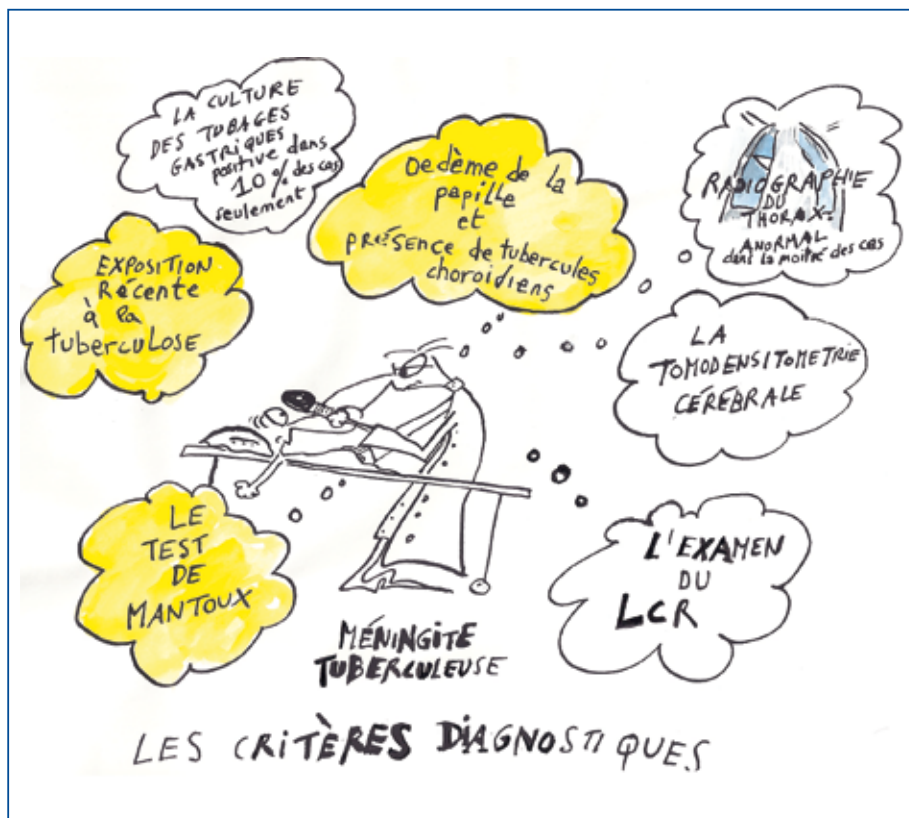 LA CULTURE
DES TUBAGES
GASTRIQUES
positive dans
10 % des cas
seulement
Oedème de la
papille
et
présence de tubercules
choroidiens
RADIOGRAPHIE
DU
THORAX:
ANORMAL
dans la moitié des cas
EXPOSITION
Récente
à la
tuberculose
LA
TOMODENSITOMETRIE
CÉRÉBRALE
LE
TEST
DE
MANTOUX
L'EXAMEN
DU
LCR
MÉNINGITE
TUBERCULEUSE
LES CRITÈRES DIAGNOSTIQUES